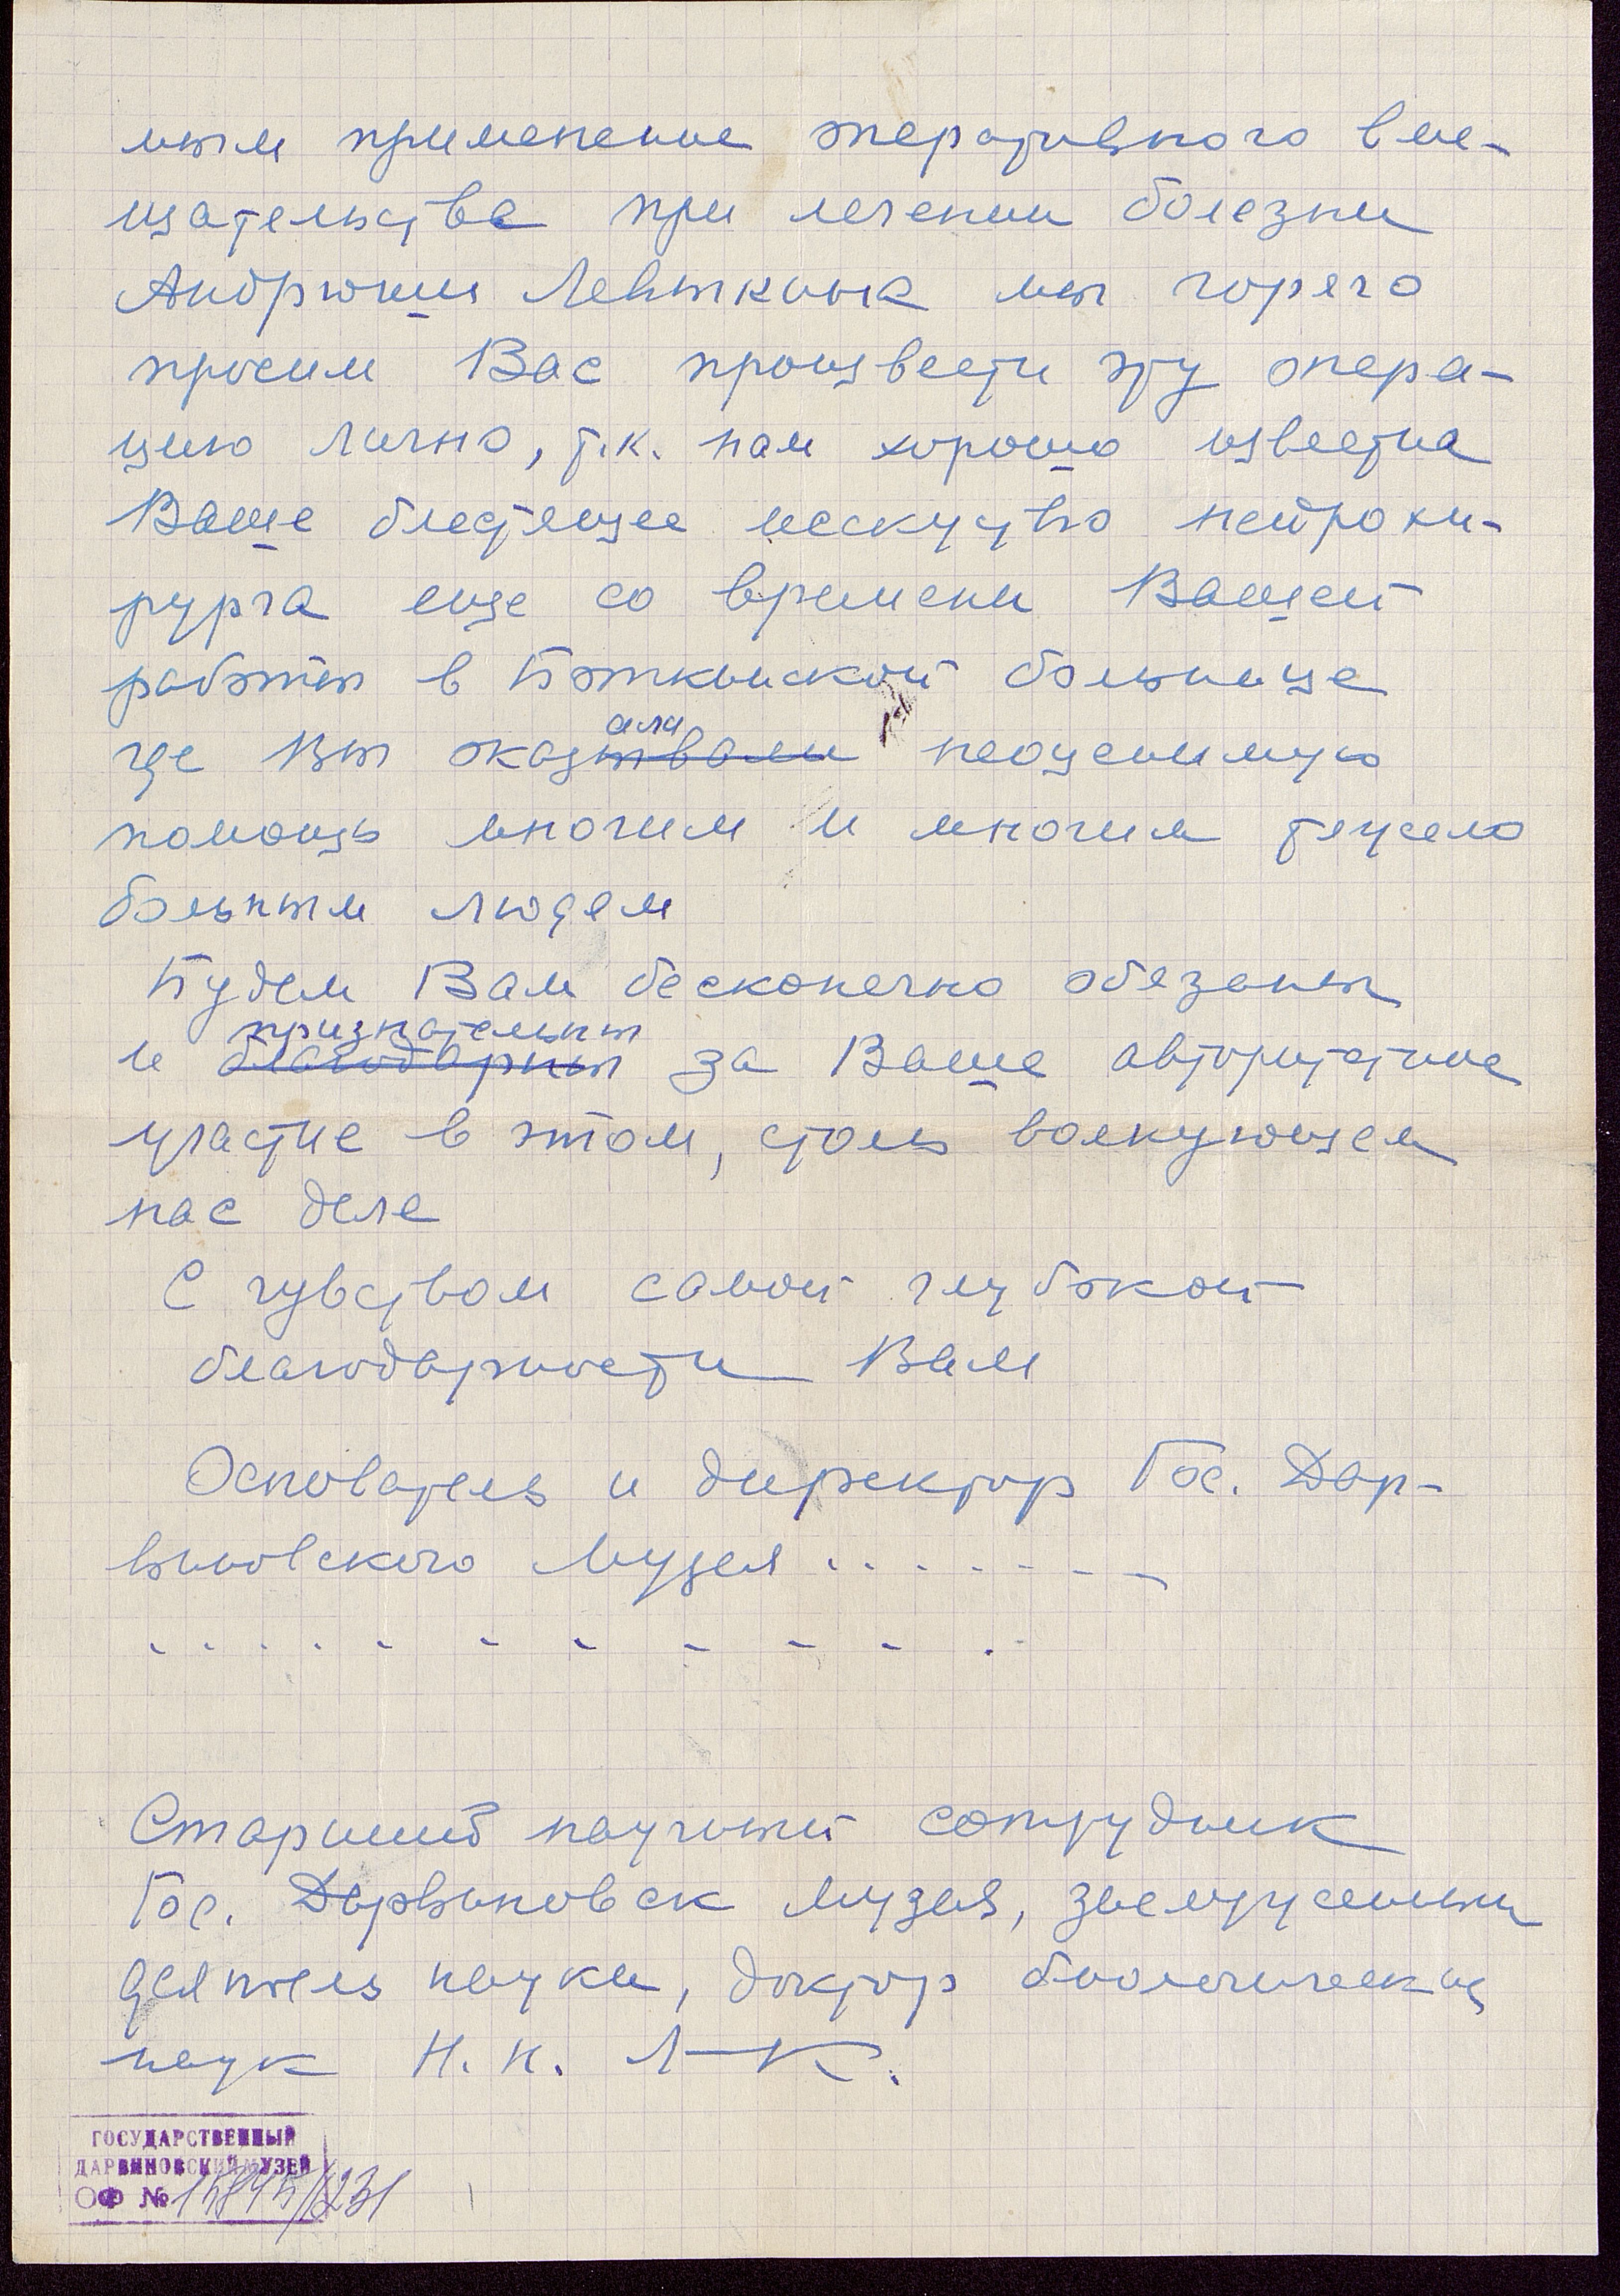 мым применение оперативного вме-
шательства при лечении болезни
Андрюши Левыкина мы горячо
просим Вас произвести эту опера-
цию лично, т.к. нам хорошо известна
Ваше блестящее искусство нейрохи-
рурга еще со времени Вашей
работы в Боткинской больнице
где Вы оказывали
али
неоценимую
помощь многим и многим тяжело
больным людям
Будем Вам бесконечно обязаны
признательны
и благодарны за Ваше авторитетное
участие в этом, столь волнующем
нас деле
С чувством самой глубокой
благодарности Вам
Основатель и директор Гос. Дар-
виновского Музея . . . . . . . .
. . . . . . . . . . .
Старший научный сотрудник
Гос. Дарвиновск Музея, заслуженный
деятель науки, доктор биологических
наук Н. Н. Л—К.
ГОСУДАРСТВЕННЫЙ
ДАРВИНОВСКИЙ МУЗЕЙ
ОФ №